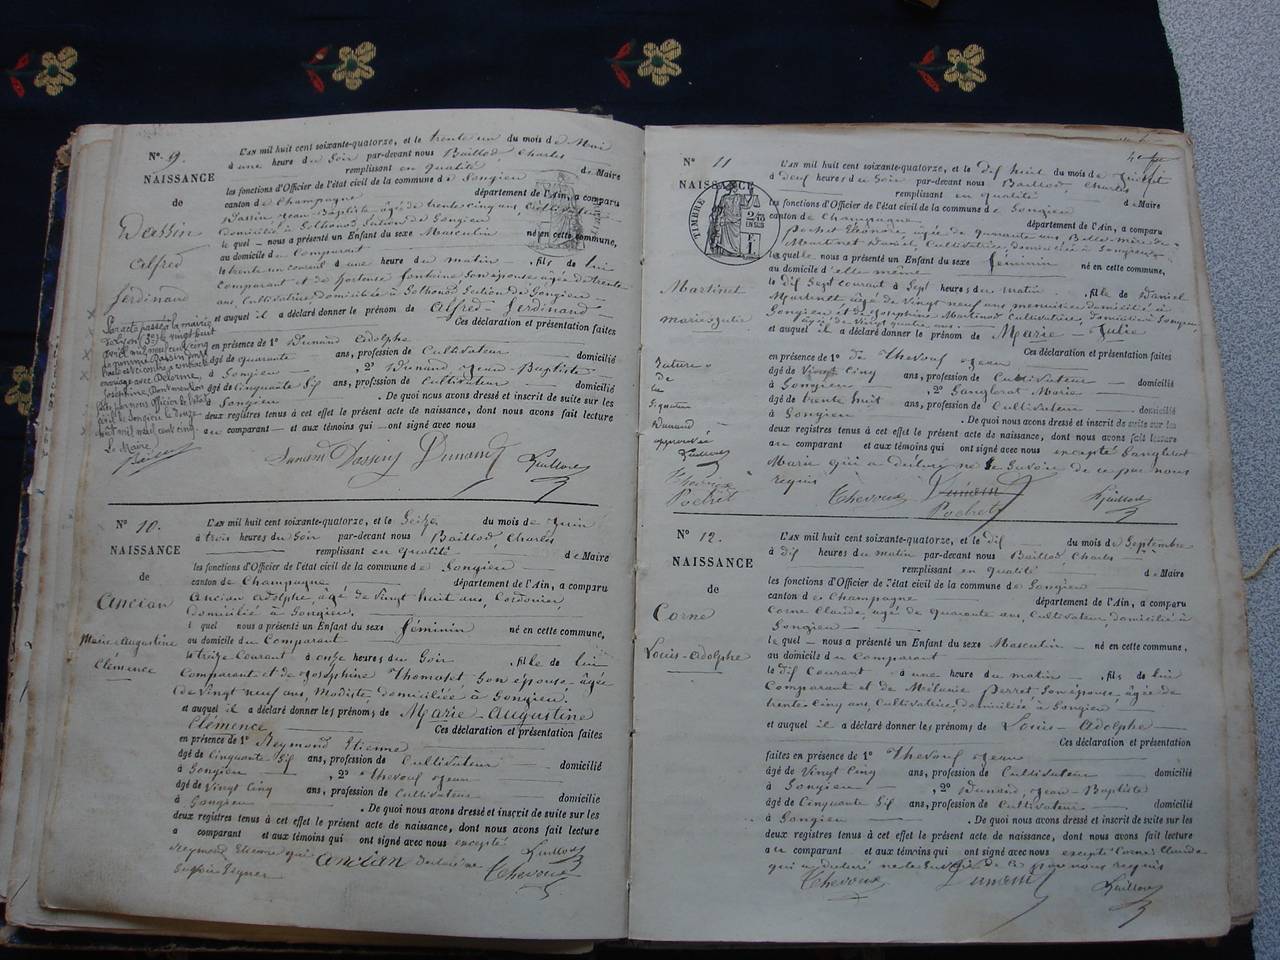 N° 9.
NAISSANCE
de
Dassin
Alfred
Ferdinand
L'AN mil huit cent soixante-quatorze, et le trente un du mois de Mai
à une heure du Soir par-devant nous Baillod, Charles
remplissant en qualité de Maire
les fonctions d'Officier de l'état civil de la commune de Songieu
canton de Champagne département de l'Ain, a comparu
Dassin Jean-Baptiste âgé de trente cinq ans, Cultivateur
domicilié à Sothonod Section de Songieu
le quel nous a présenté un Enfant du sexe Masculin né en cette commune,
au domicile du Comparant
le trente un courant à une heure du matin fils de lui
Comparant et de hortense fontaine son épouse âgée de trente
ans, Cultivatrice, domiciliée à Sothonod Section de Songieu
et auquel il a déclaré donner le prénom de Alfred-Ferdinand
Ces déclaration et présentation faites
en présence de 1° Dunand Adolphe
âgé de quarante ans, profession de Cultivateur domicilié
à Songieu , 2° Dunand Jean-Baptiste
âgé de Cinquante Six ans, profession de Cultivateur domicilié
à Songieu . De quoi nous avons dressé et inscrit de suite sur les
deux registres tenus à cet effet le présent acte de naissance, dont nous avons fait lecture
au comparant et aux témoins qui ont signé avec nous
Dunand Dassin Dunand
Par acte passé à la mairie
avril mil neuf cent cinq
le nommé Dassin
mariage avec Delorme
Joséphine
août mil neuf cent cinq
Le Maire
N° 10.
NAISSANCE
de
Ancian
Marie-Augustine
Clémence
L'AN mil huit cent soixante-quatorze, et le Seize du mois de Juin
à trois heures du Soir par-devant nous Baillod, Charles
remplissant en qualité de Maire
les fonctions d'Officier de l'état civil de la commune de Songieu
canton de Champagne département de l'Ain, a comparu
Ancian Adolphe, âgé de Vingt huit ans, Cordonier
domicilié à Songieu.
l quel nous a présenté un Enfant du sexe féminin né en cette commune,
au domicile du Comparant
le treize Courant à onze heures du Soir , fille de lui
Comparant et de Joséphine Thomaset Son épouse âgée
de Vingt neuf ans, Modiste, domiciliée à Songieu
et auquel il a déclaré donner les prénoms de Marie-Augustine
Clémence Ces déclaration et présentation faites
en présence de 1° Reymond Etienne
âgé de Cinquante Six ans, profession de Cultivateur domicilié
à Songieu , 2° Thevouf Jean
âgé de Vingt Cinq ans, profession de Cultivateur domicilié
à Songieu . De quoi nous avons dressé et inscrit de suite sur les
deux registres tenus à cet effet le présent acte de naissance, dont nous avons fait lecture
a comparant et aux témoins qui ont signé avec nous excepté
Reymond Etienne qui ancian
Thevoux
N° 11
NAISSANCE
TIMBRE
Martinet
marie-Julie
L'AN mil huit cent soixante-quatorze, et le dix huit du mois de Juillet
à deux heures du Soir par-devant nous Baillod, Charles
remplissant en qualité de Maire
les fonctions d'Officier de l'état civil de la commune de Songieu
canton de Champagne département de l'Ain, a comparu
âgée de quarante ans, Belle mère de
Martinet Daniel, Cultivatrice, domiciliée à Songieu
laquelle nous a présenté un Enfant du sexe féminin né en cette commune,
au domicile d'elle même
le dix Sept courant à Sept heures du matin , fille de Daniel
Martinet âgé de Vingt neuf ans menuisier domicilié à
Songieu et de Joséphine Martinod Cultivatrice domiciliée Songieu
âgée de Vingt quatre ans
et auquel il a déclaré donner le prénom de Marie Julie
Ces déclaration et présentation faites
en présence de 1° de Thevouf Jean
âgé de Vingt Cinq ans, profession de Cultivateur domicilié
à Songieu , 2° Sanglerat Marie
âgé de trente huit ans, profession de Cultivateur domicilié
à Songieu . De quoi nous avons dressé et inscrit de suite sur les
deux registres tenus à cet effet le présent acte de naissance, dont nous avons fait lecture
au comparant et aux témoins qui ont signé avec nous excepté Sanglerat
Marie qui a déclaré ne le Savoir de ce par nous
requis
Thevoux Dunand
Pochet
Rature
de
la
Signature
Dunand
approuvée
Thevoux
Pochet
N° 12.
NAISSANCE
de
Corne
Louis-Adolphe
L'AN mil huit cent soixante-quatorze, et le dix du mois de Septembre
à dix heures du matin par-devant nous Baillod, Charles
remplissant en qualité de Maire
les fonctions d'Officier de l'état civil de la commune de Songieu
canton de Champagne département de l'Ain, a comparu
Corne Claude, âgé de quarante ans, Cultivateur, domicilié à
Songieu
le quel nous a présenté un Enfant du sexe Masculin né en cette commune,
au domicile du Comparant
le dix Courant à une heure du matin , fils de lui
Comparant et de Mélanie Perret, Son épouse, âgée de
trente-Cinq ans, Cultivatrice, domiciliée à Songieu
et auquel il a déclaré donner les prénoms de Louis-Adolphe
Ces déclaration et présentation
faites en présence de 1° Thevouf Jean
âgé de Vingt Cinq ans, profession de Cultivateur domicilié
à Songieu , 2° Dunand, Jean-Baptiste
âgé de Cinquante Six ans, profession de Cultivateur domicilié
à Songieu . De quoi nous avons dressé et inscrit de suite sur les
deux registres tenus à cet effet le présent acte de naissance, dont nous avons fait lecture
au comparant et aux témoins qui ont signé avec nous excepté Corne Claude
qui a déclaré ne le Savoir de ce par nous requis
Thevoux Dunand